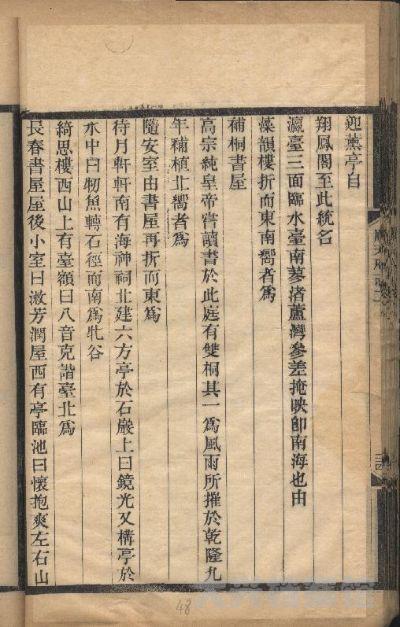 迎薰亭自
翔鳳閣至此統名
瀛臺三面臨水臺南蓼渚蘆灣參差掩映卽南海也由
藻韻樓折而東南嚮者爲
補桐書屋
高宗純皇帝嘗讀書於此庭有雙桐其一爲風雨所摧於乾隆九
年補植北嚮者爲
隨安室由書屋再折而東爲
待月軒軒南有海神祠北建六方亭於石巖上曰鏡光又構亭於
水中曰牣魚轉石徑而南爲牝谷
綺思樓西山上有臺額曰八音克諧臺北爲
長春書屋屋後小室曰漱芳潤屋西有亭臨池曰懷抱爽左右山
48